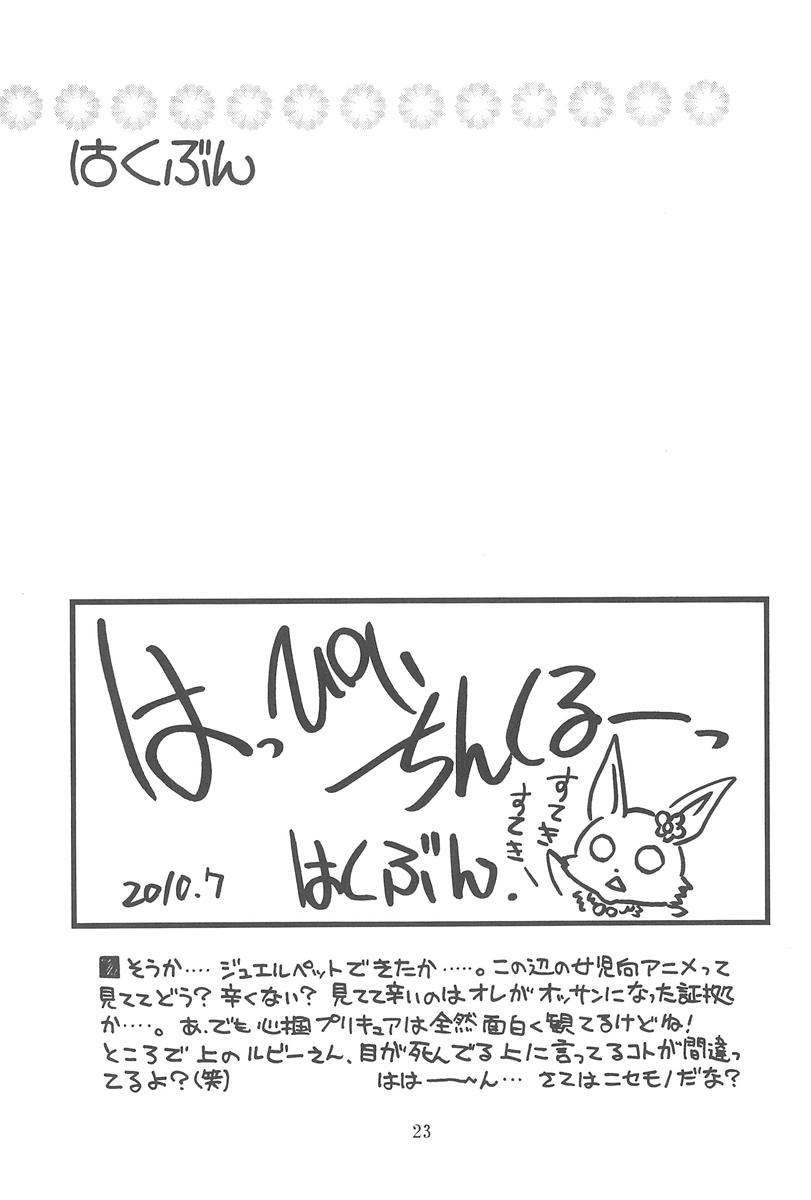 はくぶん
はっぴぃ
ちんくるーっ
すてき
すてき
2010.7
はくぶん.
■そうか‥‥ ジュエルペットできたか‥‥‥。この辺の女児向アニメって
見ててどう？辛くない？ 見てて辛いのはオレがオッサンになった証拠
か‥‥。あ、でも心掴プリキュアは全然面白く観てるけどね！
ところで上のルビーさん、目が死んでる上に言ってるコトが間違っ
てるよ？(笑) ははー～ん… さてはニセモノだな？
23